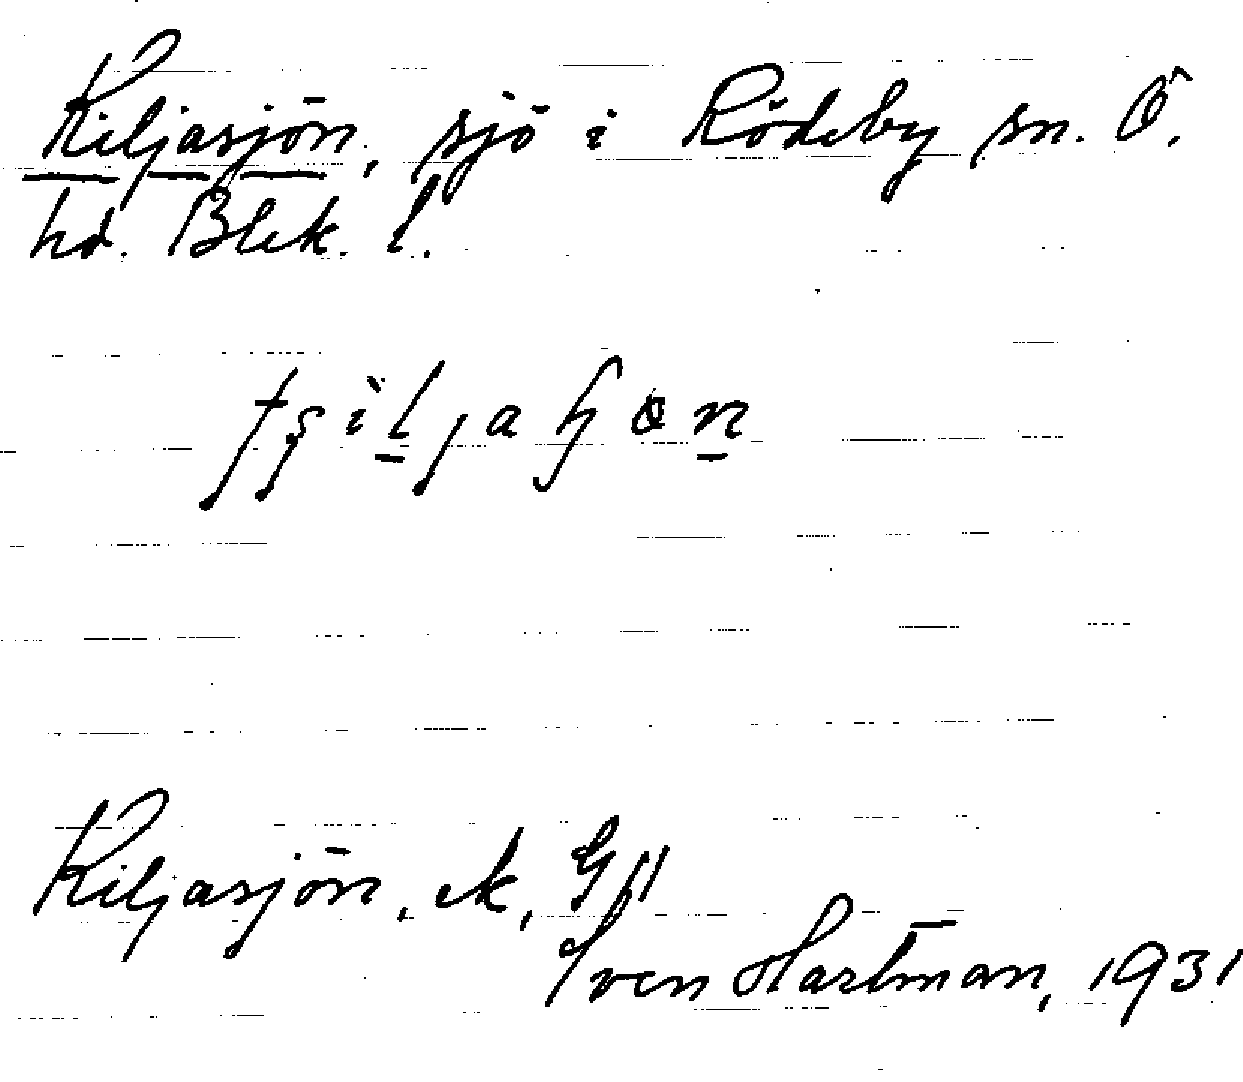 Kiljasjön, sjö i Rödeby sn. Ö.
hd. Blek. l.
Kiljasjön, ek, G 11
Sven Hartman, 1931